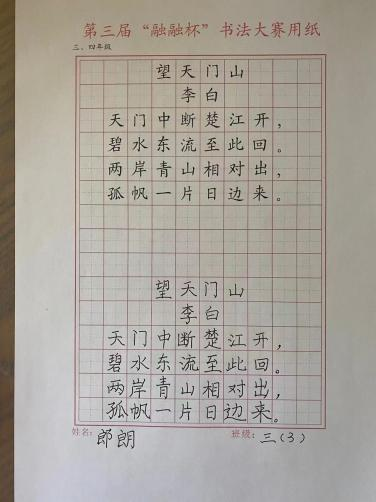 第三届“融融杯”书法大赛用纸
三、四年级
望天门山
李白
天门中断楚江开，
碧水东流至此回。
两岸青山相对出，
孤帆一片日边来。
望天门山
李白
天门中断楚江开，
碧水东流至此回。
两岸青山相对出，
孤帆一片日边来。
姓名：郎朗 班级：三（3）